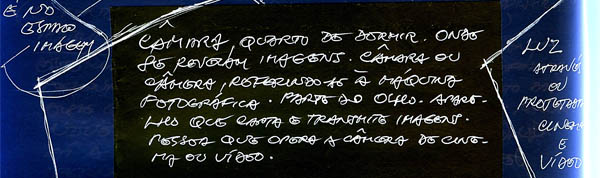 É NO
ESPAÇO
IMAGEM
CÂMARA, QUARTO DE DORMIR. ONDE
SE REVELAM IMAGENS. CÂMARA OU
CÂMERA, REFERINDO-SE À MÁQUINA
FOTOGRÁFICA. PARTE DO OLHO. APARE-
LHO QUE CAPTA E TRANSMITE IMAGENS.
PESSOA QUE OPERA A CÂMERA DE CINE-
MA OU VÍDEO.
LUZ
ATRAVÉS
OU
CINEMA
E
VÍDEO